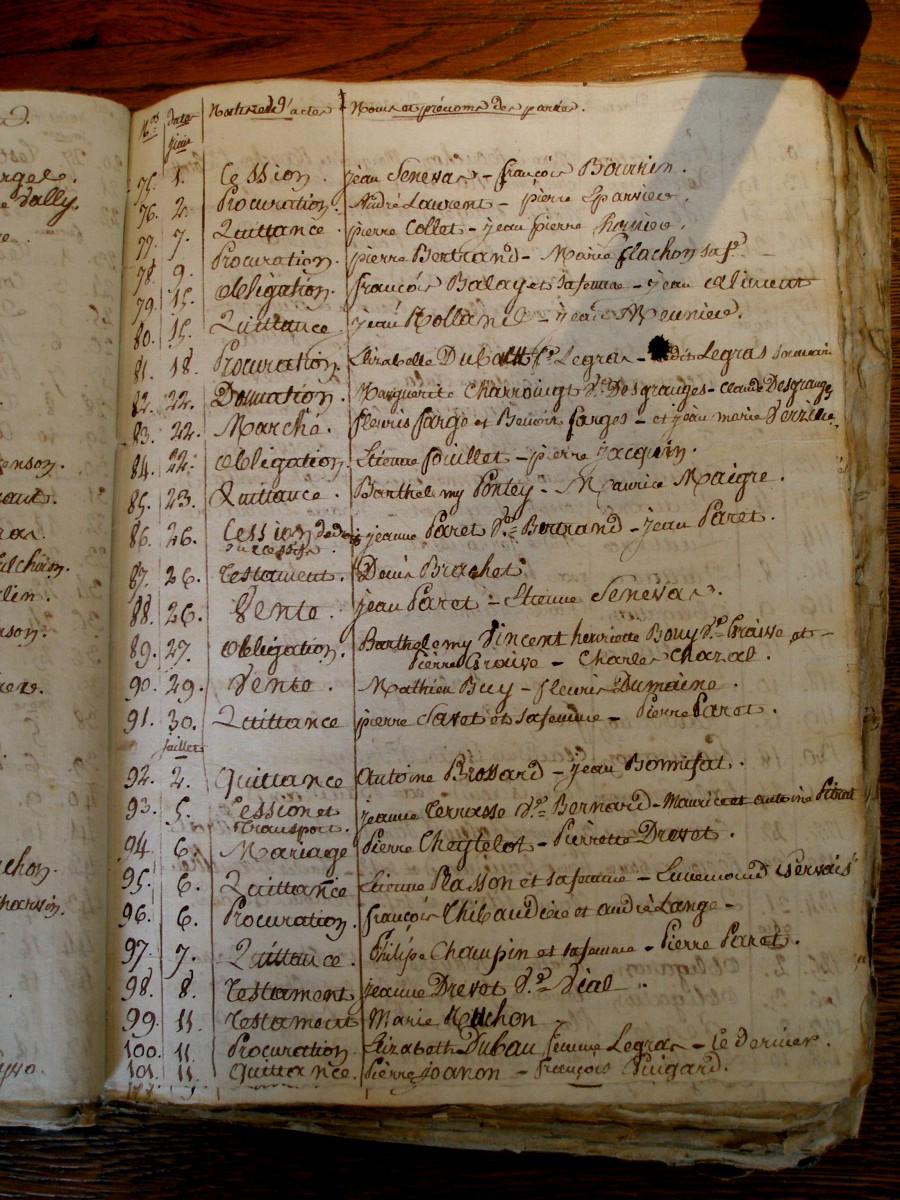 D.
rgel.
Vally.
re.
enson.
nson.
nchon.
Nos dates Natures d'actes Noms et prénoms des parties.
juin
75. 1. Cession. jean Senevas - françois Bourrin.
76. 2. Procuration. André Laurent - pierre Eparvier.
77. 7. Quittance. pierre Collet - jean pierre
78. 9. Procuration. pierre Bertrand - Marie flachon sa f.e
79. 15. Obligation. françois Balay et sa femme - jean
80. 15. Quittance. jean Rolland - jean Meunier.
81. 18. Procuration. Elizabethe Dubau f.e Legras - dit Legras son mari
82. 22. Donnation. Marguerite Charrouigt V.e Desgranges - Claude Desgranges
83. 22. Marché. fleuris farge et Benoit farges - et jean marie Verzille.
84. 22. Obligation. Etienne fouillet - pierre jacquin.
85. 23. Quittance. Barthelmy Pontey - Maurice Maigre.
86. 26. Cession de droits jeanne Paret V.e Bertrand - jean Paret.
successifs.
87. 26. Testament. Denis Brachet.
88. 26. Vente. jean Paret - Etienne Senevas.
89. 27. Obligation. Barthelemy Vincent henriette Bouy V.e Graive et -
Pierre Graive - Charles Chazal.
90. 29. Vente. Mathieu Buy - fleuris Dumaine.
91. 30. Quittance pierre Savet et sa femme - Pierre Paret.
juillet
92. 2. Quittance Antoine Brossard - jean Bonnifat.
93. 5. Cession et jeanne Terrasse V.e Bernard - Maurice et antoine
Transport.
94. 6. Mariage Pierre Cheytelot - Pierrette Drevet.
95. 6. Quittance Etienne Rasson et sa femme - Gervais
96. 6. Procuration. françois Thibaudière et andré Lange -
97. 7. Quittance. Philipe Champin et sa femme - Pierre Paret.
98. 8. Testament jeanne Drevet V.e Véal.
99. 11. Testament Marie Muchon
100. 11. Procuration. Elizabeth Dubau femme Legras - le dernier.
101. 11. Quittance. Pierre joanon - françois Puigard.